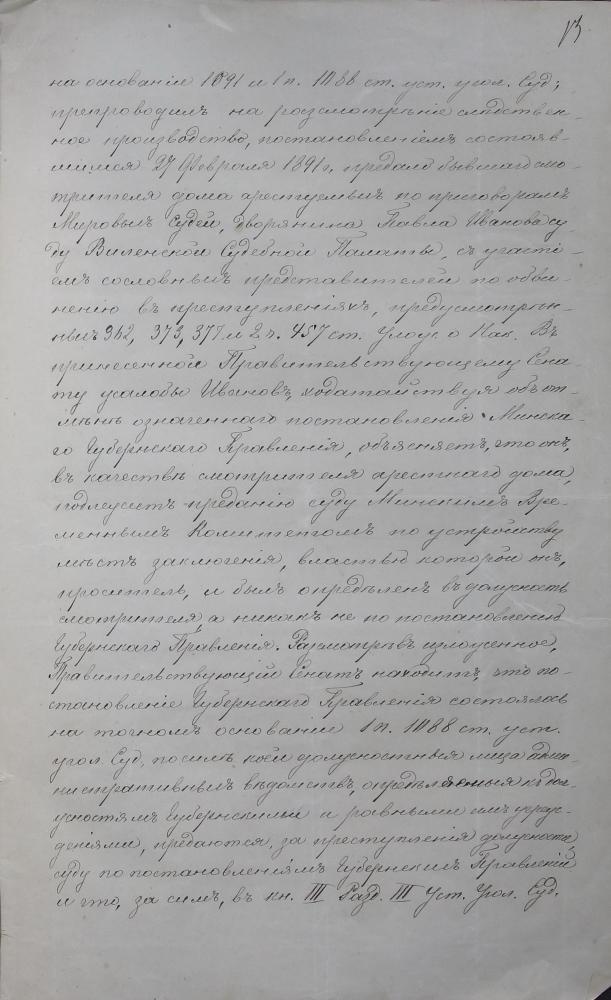 13
на основаніи 1091 и 1 п. 1088 ст. уст. угол. Суд.,
препроводилъ на разсмотрѣніе слѣдствен-
ное производство, постановленіемъ состояв-
шимся 27 Февраля 1891 г. предало бывшаго смо-
трителя дома арестуемыхъ по приговорамъ
Мировыхъ Судей, дворянина Павла Иванова су-
ду Виленской Судебной Палаты, съ участі-
емъ сословныхъ представителей по обви-
ненію въ преступленіяхъ, предусмотрѣн-
ныхъ 362, 373, 377 и 2 ч. 457 ст. Улож. о Нак. Въ
принесенной Правительствующему Сена-
ту жалобѣ Ивановъ, ходатайствуя объ от-
мѣнѣ означеннаго постановленія Минска-
го Губернскаго Правленія, объясняетъ, что онъ,
въ качествѣ смотрителя арестнаго дома,
подлежитъ преданію суду Минскимъ Вре-
меннымъ Комитетомъ по устройству
мѣстъ заключенія, властью котораго онъ,
проситель, и былъ опредѣленъ въ должность
смотрителя, а никакъ не по постановленію
Губернскаго Правленія. Разсмотрѣвъ изложенное,
Правительствующій Сенатъ находитъ, что по-
становленіе Губернскаго Правленія состоялось
на точномъ основаніи 1 п. 1088 ст. уст.
угол. Суд., по силѣ коей должностныя лица адми-
нистративныхъ вѣдомствъ, опредѣляемыя къ дол-
жностямъ Губернскими и равными имъ учреж-
деніями, предаются, за преступленія должности,
суду по постановленіямъ Губернскихъ Правленій
и что, за симъ, въ кн. III Разд. III Уст. Угол. Суд.